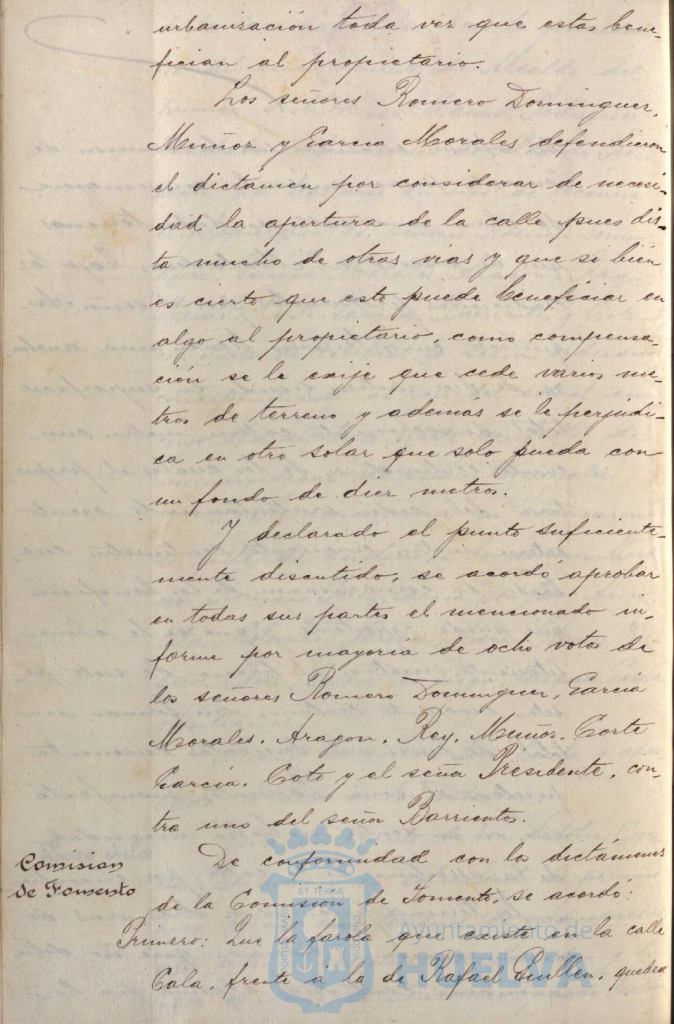 urbanización toda vez que estas bene-
fician al propietario.
Los señores Romero Dominguez,
Muñoz y Garcia Morales defendieron
el dictámen por considerar de necesi-
dad la apertura de la calle pues dis-
ta mucho de otras vias y que si bién
es cierto que esto puede beneficiar en
algo al propietario, como compensa-
ción se le exije que cede varios me-
tros de terreno y además se le perjudi-
ca en otro solar que solo pueda con
un fondo de diez metros.
Y declarado el punto suficiente-
mente discutido, se acordó aprobar
en todas sus partes el mencionado in-
forme por mayoria de ocho votos de
los señores Romero Dominguez, Garcia
Morales, Aragon, Rey, Muñoz, Corte
Garcia, Coto y el seña Presidente, con-
tra uno del señor Barrientos.
Comision
de Fomento
De conformidad con los dictámenes
de la Comision de Fomento, se acordó:
Primero: Que la farola que existe en la calle
Cala, frente á la de Rafael Guillen, quede
Ayuntamiento de
HUELVA